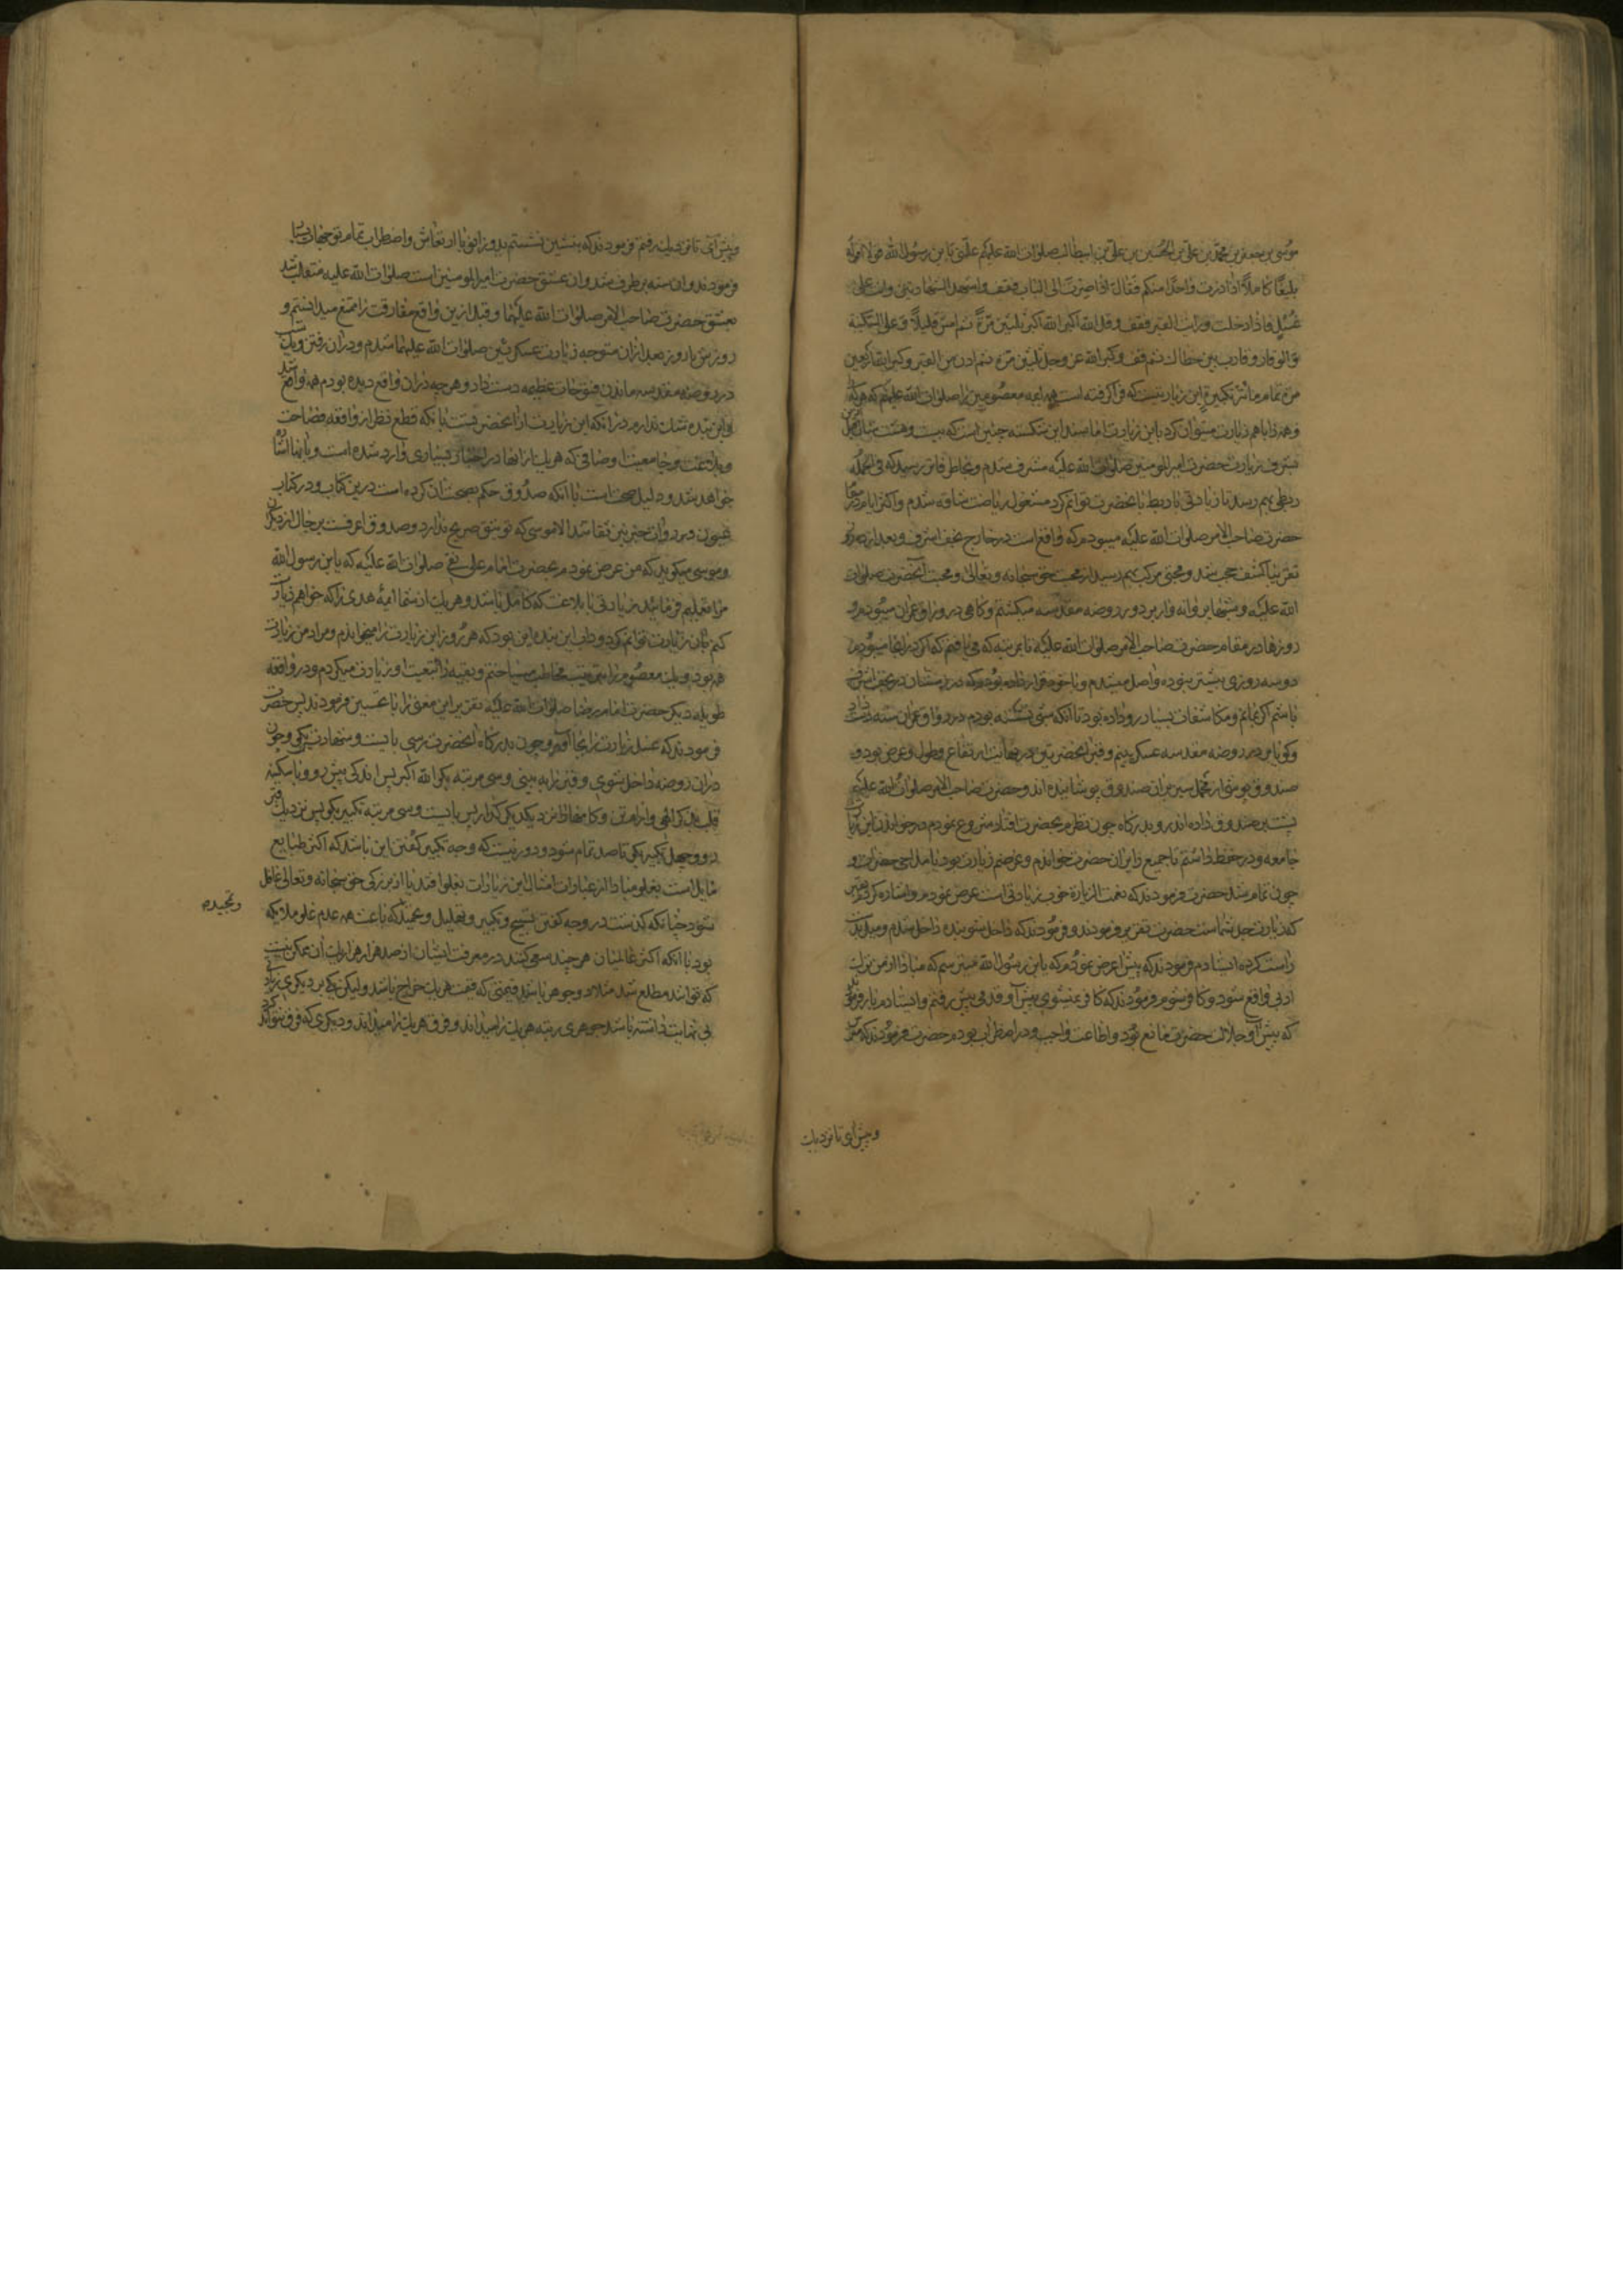 موسی بن جعفر بن محمد بن علی بن الحسین بن علی بن ابیطالب صلوات الله علیکم علمنی یا بن رسول الله قولا اقوله
بلیغا کاملا اذا زرت واحدا منکم فقال اذا صرت الی الباب فقف واشهد الشهادتین وانت علی
غسل فاذا دخلت ورایت القبر فقف وقل الله اکبر الله اکبر ثلثین مرة ثم امش قلیلا وعلیک السکینة
والوقار وقارب بین خطاک ثم قف وکبر الله عز وجل ثلثین مرة ثم ادن من القبر وکبر الله اربعین
مرة تمام مائة تکبیرة این زیارتیست که فرا گرفته است همه ائمه معصومین را صلوات الله علیهم که هریک
وهمه را باهم زیارت میتوان کرد باین زیارت اما سند این شکسته چنین است که بیست وهشت سال قبل ازین
بشرف زیارت حضرت امیرالمومنین صلوات الله علیه مشرف شدم وبخاطر فاتر رسید که فی الجمله
ربطی بهم رسد تا زیارتی با ربط بانحضرت توانم کرد مشغول ریاضت شاقه شدم واکثر ایام در مقام
حضرت صاحب الامر صلوات الله علیه میبودم که واقع است در خارج نجف اشرف وبعد از ده روز
تقریبا کشف حجب شد ومحبتی مرکب بهم رسید از محبت حق سبحانه وتعالی ومحبت انحضرت صلوات
الله علیه وشبها پروانه وار بر دور روضه مقدسه میکشتم وکاهی در رواق عمران میبودم و
روزها در مقام حضرت صاحب الامر صلوات الله علیه تا بمرتبه که می یافتم که اکر در انجا میبودم
دوسه روزی بیشتر نبوده واصل میشدم وبا خود قرار داده بودم که در زمستان در نجف اشرف
باشم اکر بمانم ومکاشفات بسیار رو داده بود تا انکه شبی نشسته بودم در رواق عمران سنه دست داد
وکویا من در روضه مقدسه عسکریینم وقبر انحضرتین در نهایت ارتفاع وطول وعرض بود و
صندوق پوشی از مخمل سبز بران صندوق پوشانیده اند وحضرت صاحب الامر صلوات الله علیه
پشت بر صندوق داده اند رو بدرکاه چون نظرم بحضرت افتاد شروع نمودم در خواندن این زیارت
جامعه ودر حفظ داشتم تا جمیع را بران حضرت خواندم وغرضم زیارت بود با مداحی حضرات و
چون تمام شد حضرت فرمودند که نعمت الزیارة خوب زیارتی است عرض نمودم واشاره کردم بقبر
که زیارت جد شماست حضرت تقریر فرمودند وفرمودند که داخل شو بنده داخل شدم ومیل بدست
راست کرده ایستادم فرمودند که پیش ا عرض نمودم که یا بن رسول الله میترسم که مبادا از من ترک
ادبی واقع شود وکافر شوم فرمودند که کافر نمیشوی پیش آ وقدمی پیش رفتم وایستادم باز فرمودند
که پیش آ وجلالت حضرت مانع بود واطاعت واجب ودر اضطراب بودم حضرت فرمودند که مترس
وپیش ای تا نزدیک
وپیش آی تا نزدیک رفتم فرمودند که بنشین نشستم بدو زانو با ارتعاش واضطراب تمام توجهات بسیار
فرمودند وان سنه برطرف شد وان عشق حضرت امیرالمومنین است صلوات الله علیه منقلب شد
بعشق حضرت صاحب الامر صلوات الله علیهما وقبل ازین واقع مفارقت را ممتنع میدانستم و
روزش یا روز بعد ازان متوجه زیارت عسکریین صلوات الله علیهما شدم ودران رفتن ویک شب
در روضه مقدسه ماندن فتوحات عظیمه دست داد وهر چه دران واقع دیده بودم همه واقع شد
این بنده شک ندارم در انکه این زیارت از انحضرتست با انکه قطع نظر از واقعه فصاحت
وبلاغت وجامعیت اوصافی که هریک ازانها در اخبار بسیاری وارد شده است وبانها اشاره
خواهد شد ودلیل صحت است با انکه صدوق حکم بصحت ان کرده است درین کتاب ودر کتاب
عیون وبر روایت خبر نیز ثقات اند الا موسی که توثیق صریح ندارد وصدوق اعرفست برجال از دیکران
وموسی میکوید که من عرض نمودم بحضرت امام علی نقی صلوات الله علیه که یا بن رسول الله
مرا تعلیم فرمائید زیارتی با بلاغت که کامل باشد وهریک از شما ائمه هدی را که خواهم زیارت
کنم بان زیارت توانم کرد وداب این بنده این بود که هر روز این زیارت را میخواندم ومراد من زیارت
همه بود ویک معصوم را بترتیب مخاطب میساختم وبقیه را بتبعیت او زیارت میکردم ودر واقعه
طویله دیکر حضرت امام رضا صلوات الله علیه تقریر این معنی را با تحسین فرمودند پس حضرت
فرمودند که غسل زیارت را بجا آور وچون بدرکاه انحضرت رسی بایست وشهادتین بکو وچون
دران روضه داخل شوی وقبر را به بینی وسی مرتبه بکو الله اکبر پس اندکی پیش رو وبا سکینه
قلب وارام تن وکامها را نزدیک یکدیکر کذار پس بایست وسی مرتبه تکبیر بکو پس نزدیک قبر
رو وچهل تکبیر بکو تا صد تمام شود ودور نیست که وجه تکبیر کفتن این باشد که اکثر طبایع
مایل است بغلو مبادا از عبارات امثال این زیارات بغلو افتند یا از بزرکی حق سبحانه وتعالی غافل
شود چنانکه کذشت در وجه کفتن تسبیح وتکبیر وتهلیل وتحمید که باعث همه عدم غلو ملائکه
وتمجیده
بود با انکه اکثر عالمیان هر چند سعی کنند در معرفت ایشان از صد هزار هزار یک ان ممکن نیست
که توانند مطلع شد مثلا دو جوهر باشد قیمتی که قیمت هریک خراجی باشد ولیکن یکی بر دیکری زیادتی
بی نهایت داشته باشد جوهری رتبه هریک را میداند وفرق هریک را میداند ودیکری که فرق نتواند کرد